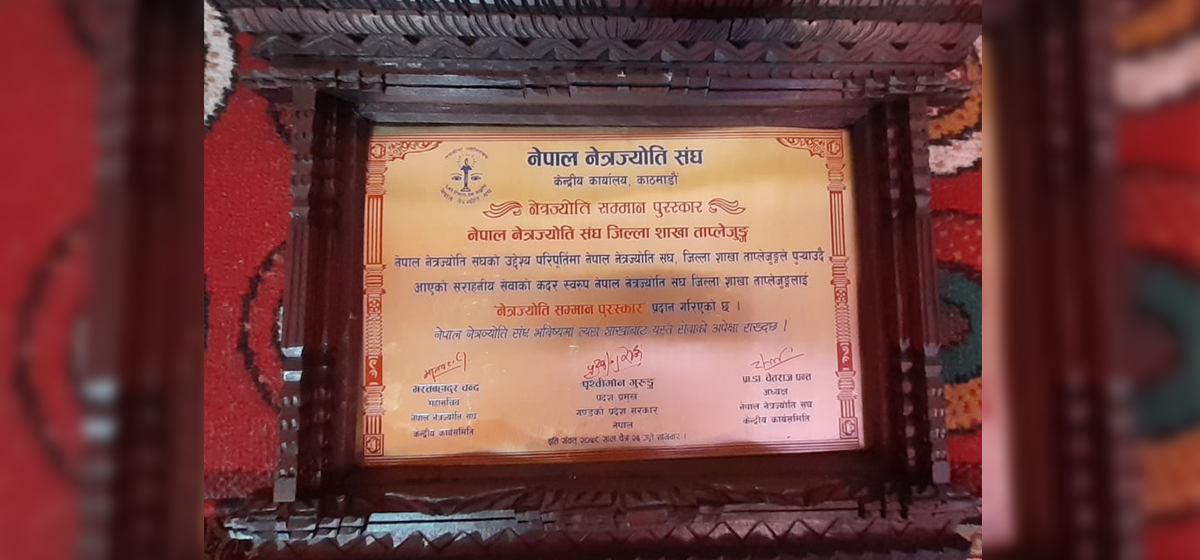 नेपाल नेत्रज्योति संघ
केन्द्रीय कार्यालय, काठमाडौं
नेत्रज्योति सम्मान पुरस्कार
नेपाल नेत्रज्योति संघ जिल्ला शाखा ताप्लेजुङ्ग
नेपाल नेत्रज्योति संघको उद्देश्य परिपूर्तिमा नेपाल नेत्रज्योति संघ, जिल्ला शाखा ताप्लेजुङ्गले पुर्‍याउदै
आएको सराहनीय सेवाको कदर स्वरुप नेपाल नेत्रज्योति संघ जिल्ला शाखा ताप्लेजुङ्गलाई
'नेत्रज्योति सम्मान पुरस्कार' प्रदान गरिएको छ ।
नेपाल नेत्रज्योति संघ भविष्यमा त्यस शाखाबाट यस्तै सेवाको अपेक्षा राख्दछ ।
भरतबहादुर चन्द
महासचिव
नेपाल नेत्रज्योति संघ
केन्द्रीय कार्यसमिति
पृथ्वीमान गुरुङ्ग
प्रदेश प्रमुख
गण्डकी प्रदेश सरकार
नेपाल
प्रा.डा. चेतराज पन्त
अध्यक्ष
नेपाल नेत्रज्योति संघ
केन्द्रीय कार्यसमिति
इति संवत् २०७८ साल चैत्र २६ गते शनिवार ।